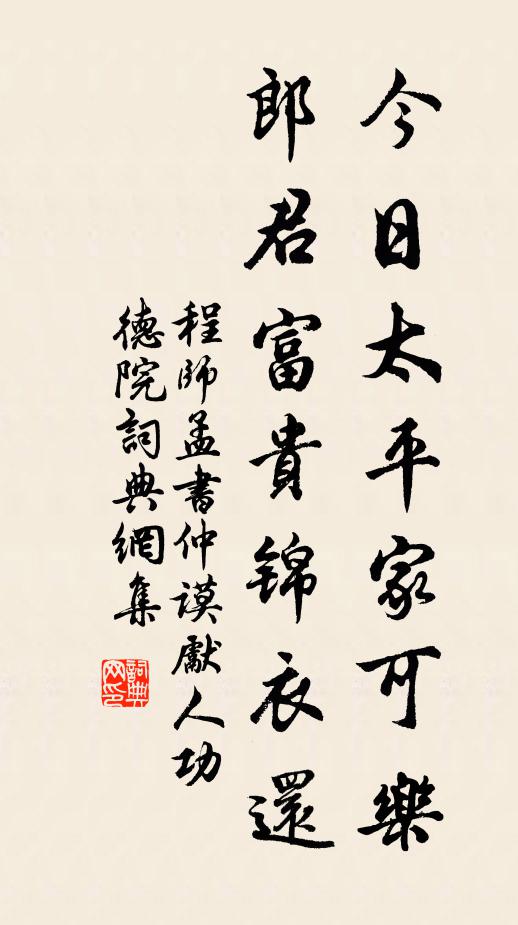 今日太平家可樂
郎君富貴錦衣還
程師孟書仲謨獻人功
德院詞典網集
詞典网印